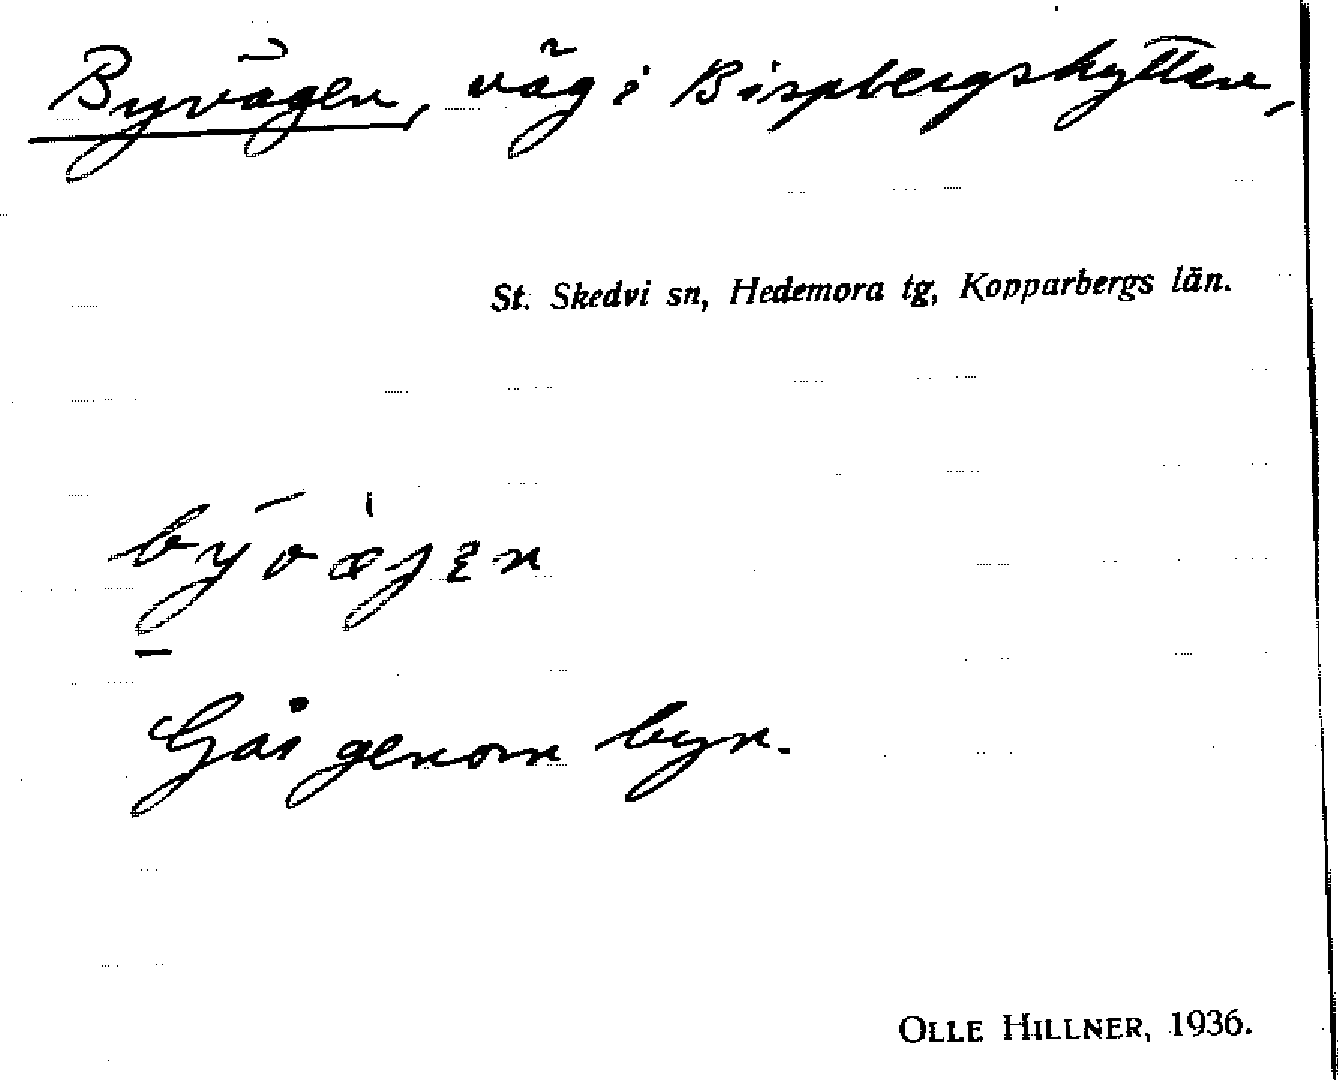 Byvägen, väg i Bispbergshyttan,
St. Skedvi sn, Hedemora tg, Kopparbergs län.
Går genom byn.
OLLE HILLNER, 1936.